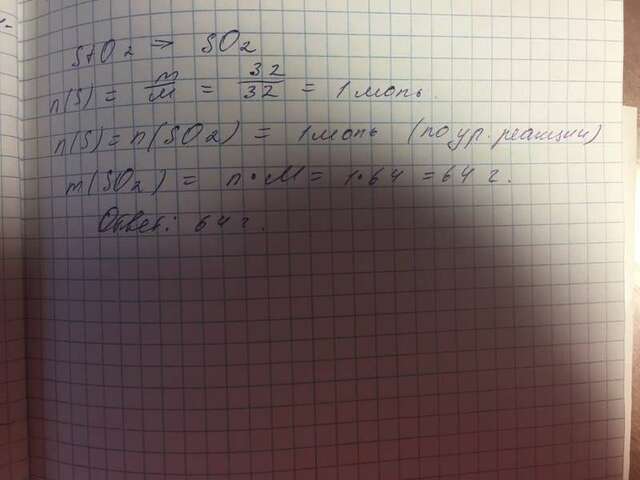 S+O2 → SO2
n(S) = m/M = 32/32 = 1 моль.
n(S) = n(SO2) = 1 моль (по ур. реакции)
m(SO2) = n•M = 1•64 = 64 г.
Ответ: 64 г.